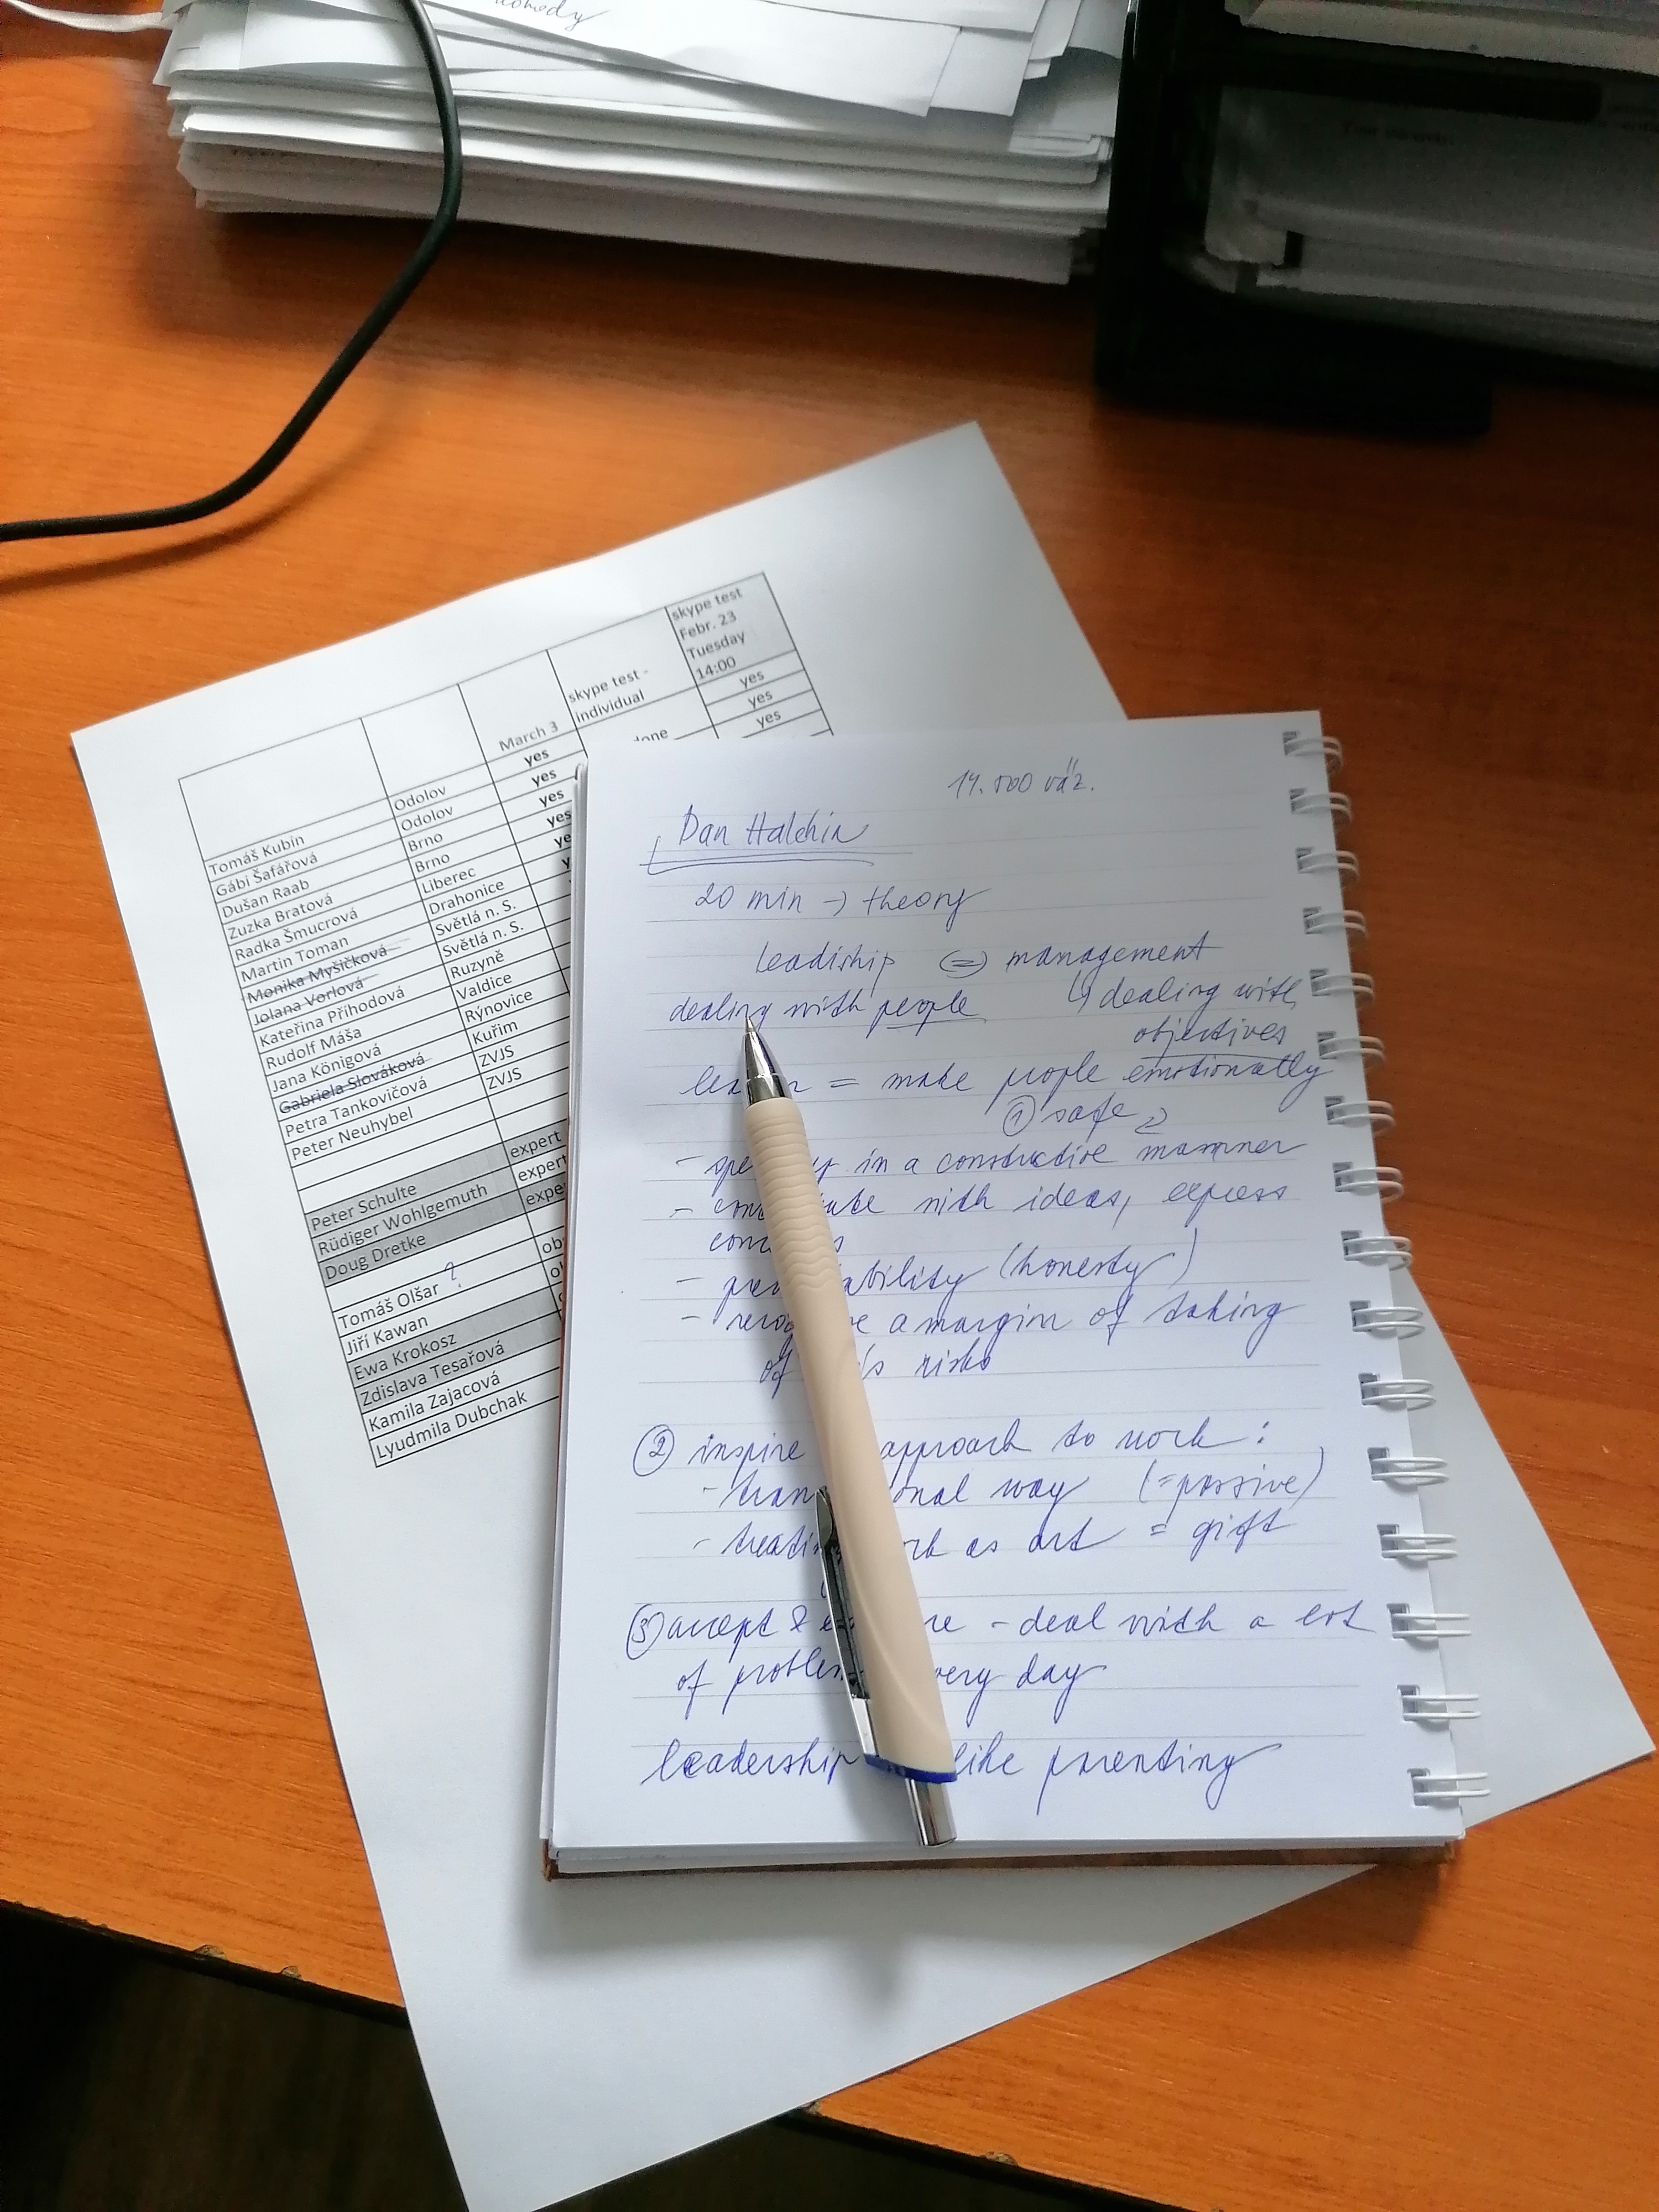 comedy
skype test
Febr. 23
Tuesday
14:00
skype test -
individual
March 3
yes
yes
yes
done
Tomáš Kubín Odolov yes
Gábi Šafářová Odolov yes
Dušan Raab Brno yes
Zuzka Bratová Brno yes
Radka Šmucrová Liberec ye
Martin Toman Drahonice y
Monika Myšičková Světlá n. S.
Jolana Vorlová Světlá n. S.
Kateřina Příhodová Ruzyně
Rudolf Máša Valdice
Jana Königová Rýnovice
Gabriela Slováková Kuřim
Petra Tankovičová ZVJS
Peter Neuhybel ZVJS
Peter Schulte expert
Rüdiger Wohlgemuth expert
Doug Dretke expe
Tomáš Olšar ? ob
Jiří Kawan
Ewa Krokosz
Zdislava Tesařová
Kamila Zajacová
Lyudmila Dubchak
000 váz.
Dan Halchin
20 min → theory
leadiship management
dealing with people ↳ dealing with
objectives
= make people emotionally
① safe
- in a constructive mannner
- with ideas, express
- ability (honesty)
- a margin of taking
of risks
② inspire approach to work :
- tran onal way (= passive)
- treatin rk as art = gift
③ accept & re - deal with a lot
of problem very day
leadership like parenting